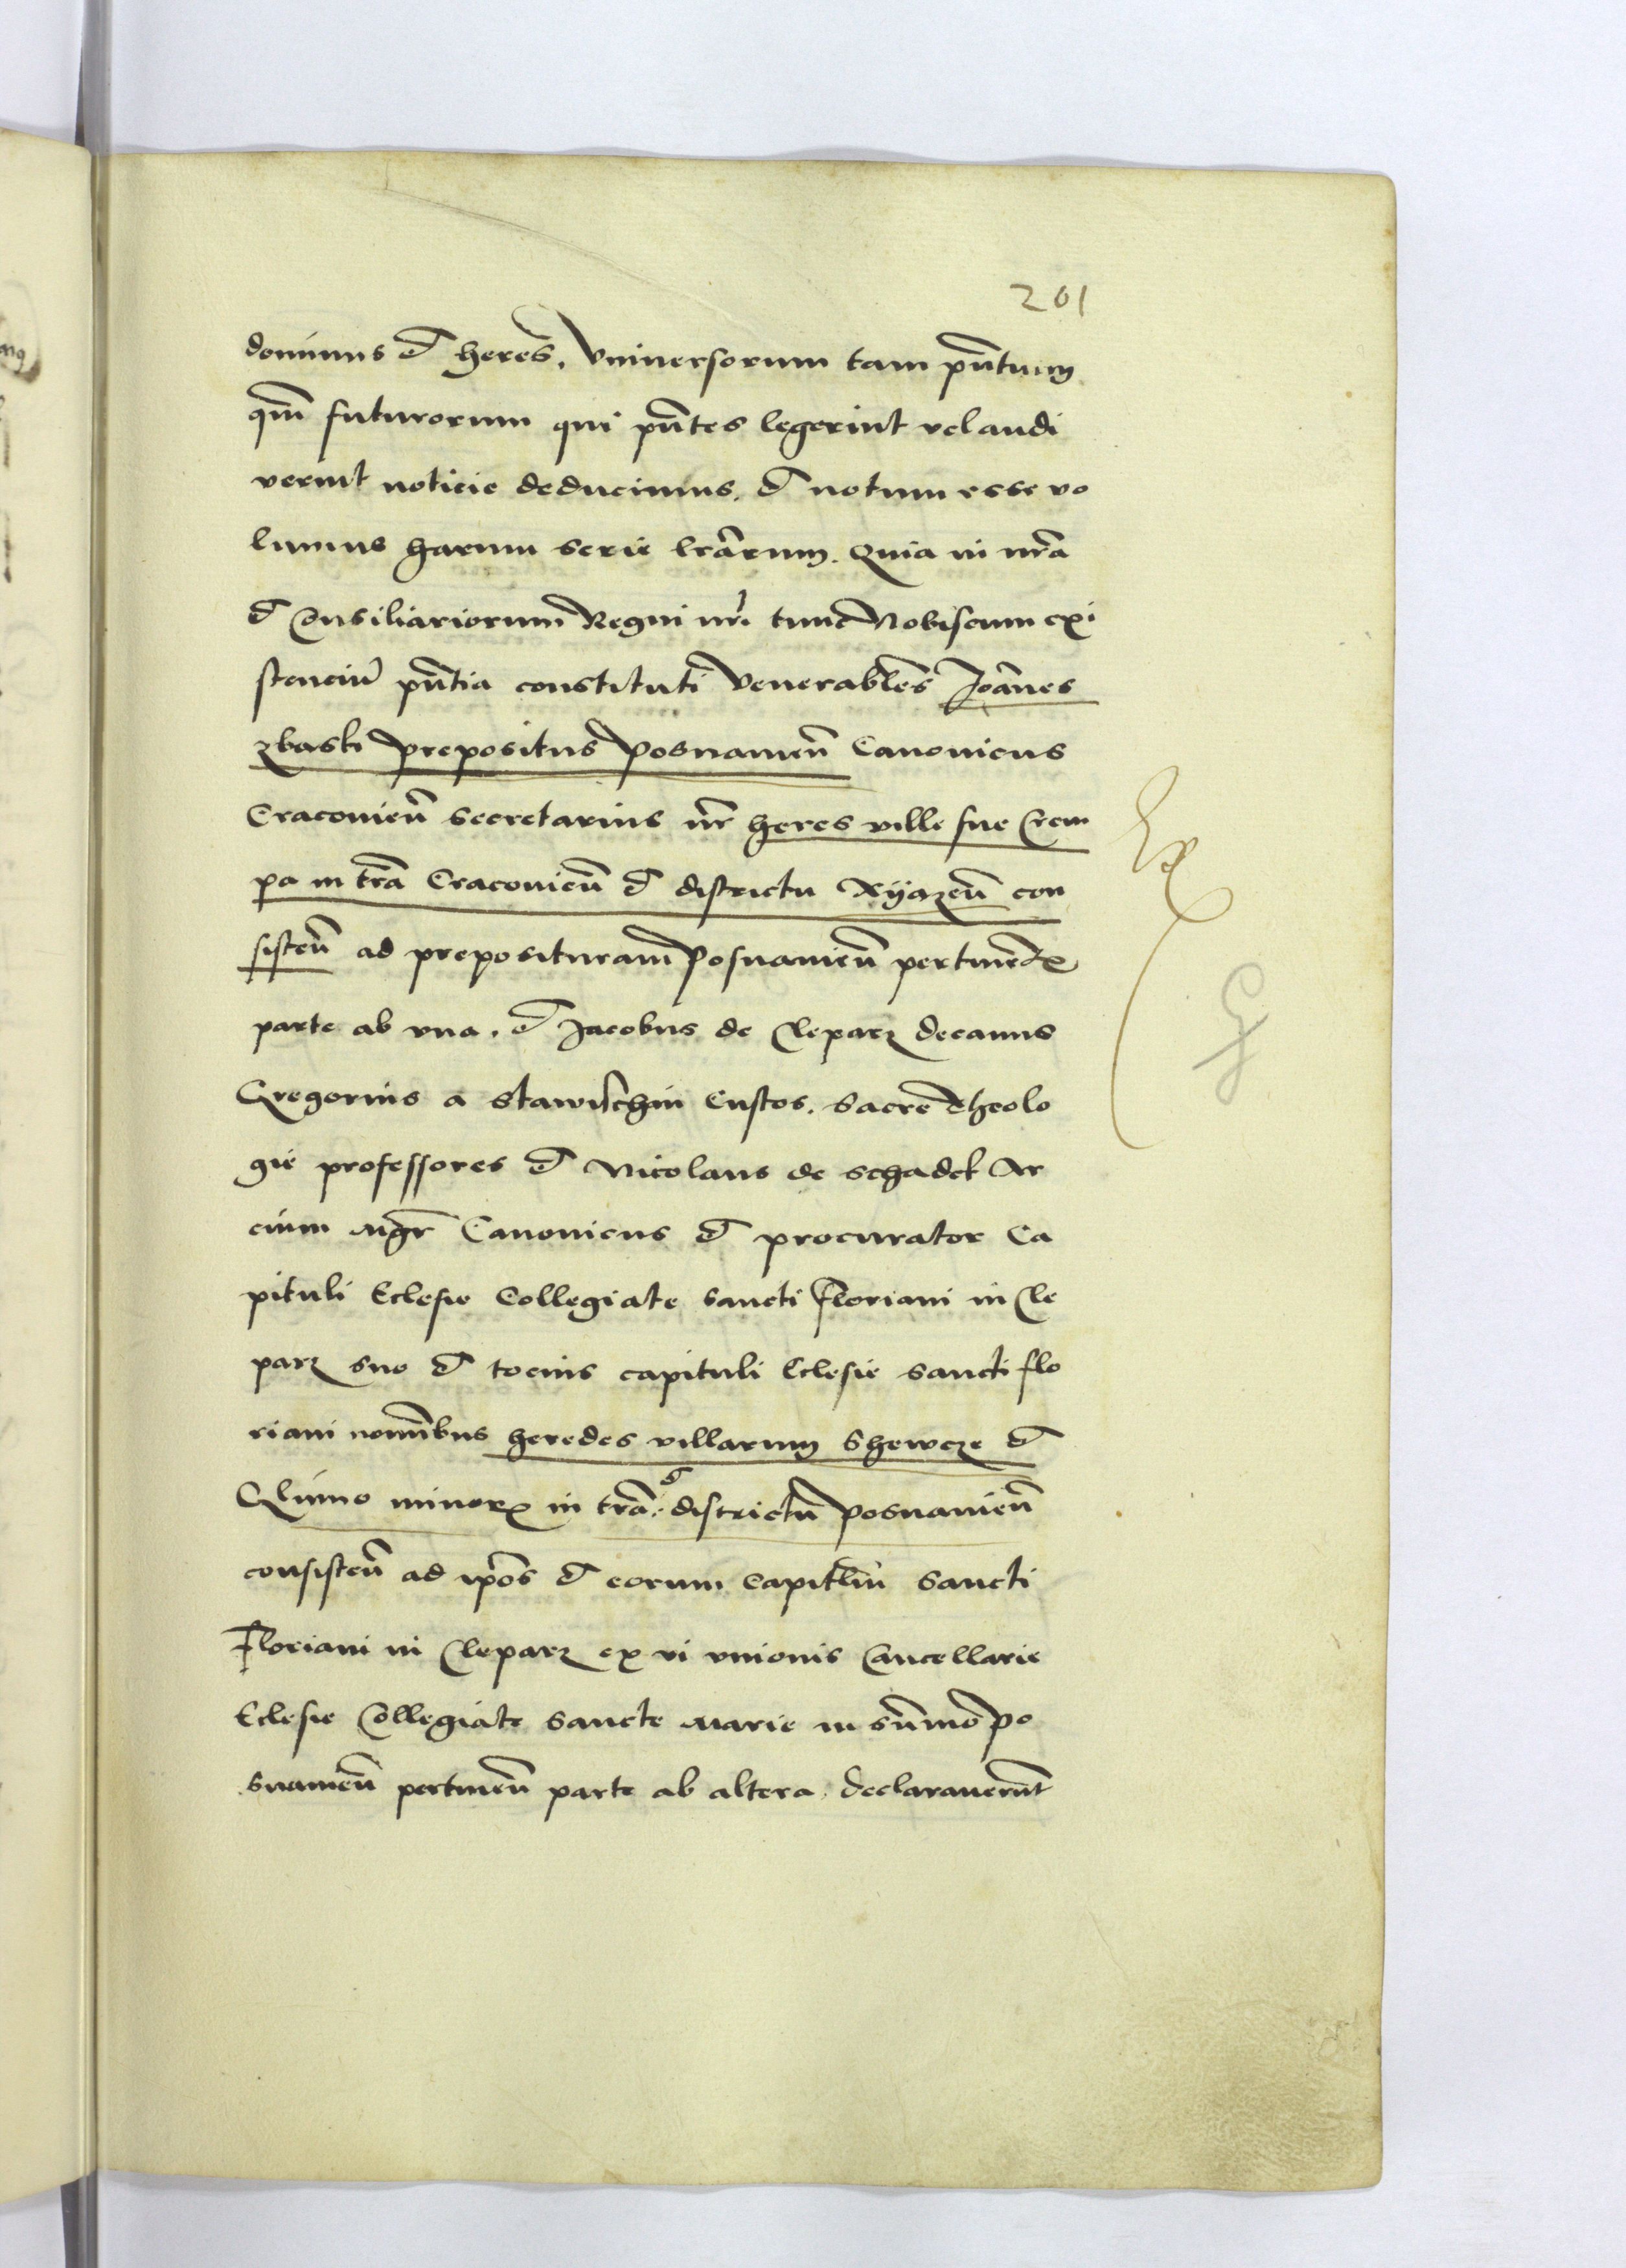 201
dominus et heres. Vniversorum tam pn̄tium
qm̄ futurorum qui pn̄tes legerint vel audi
verint noticie deducimus. et notum esse vo
lumus harum serie lr̄arum. Quia in nr̄a
et Consiliariorum Regni nr̄i tunc Nobiscum exi
stenciū pn̄tia constituti Venerabl̄es Joān̄es
zbaski prepositus Posnanien̄ Canonicus
Cracovien̄ Secretarius nr̄ heres ville sue Crem
pa in tr̄a Cracovien̄ et districtu Xyazen̄ con
sisten̄ ad preposituram Posnanien̄ pertinen̄
parte ab vna. et Jacobus de Cleparz decanus
Gregorius a Stawischin Custos. Sacre Theolo
gie professores et Nicolaus de Schadek Ar
cium Mgr̄ Canonicus et procurator Ca
pituli Eclesie Collegiate Sancti Floriani in Cle
parz suo et tocius capituli Eclesie Sancti Flo
riani nomin̄ibus heredes villarum Shewcze et
minor in tr̄a et districtu Posnanien̄
consisten̄ ad ip̄os et eorum Capitl̄m Sancti
Floriani in Cleparz ex vi vnionis Cancellarie
Eclesie Collegiate Sancte Marie in sūmo Po
snanien̄ pertinen̄ parte ab altera. declaraverūt